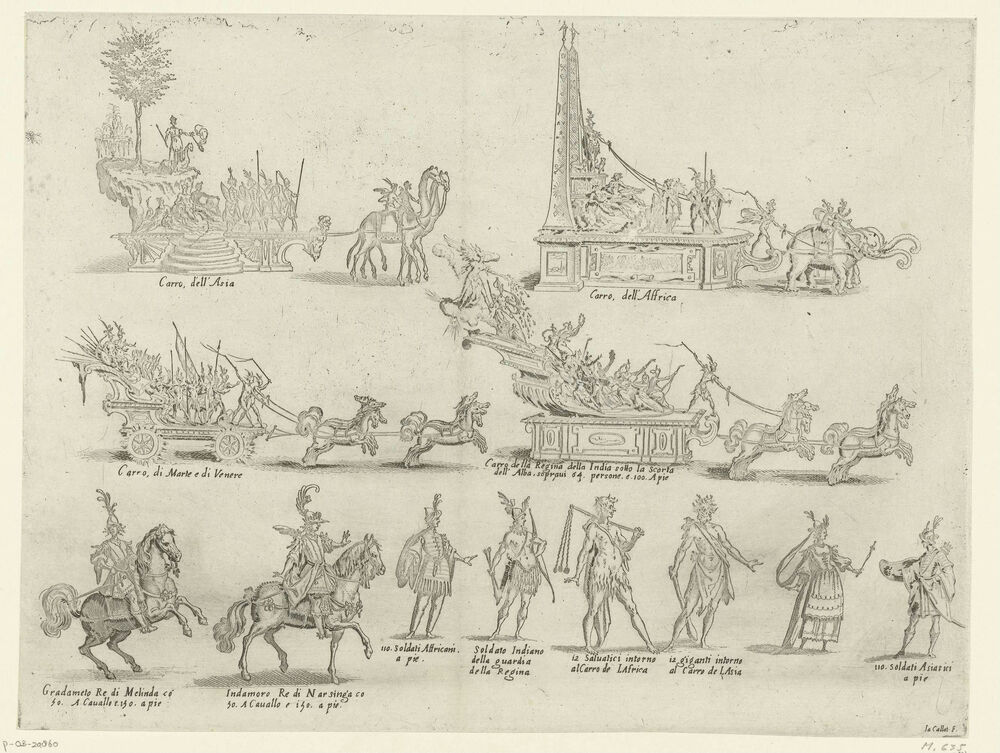 Carro, dell'Asia
Carro, dell'Affrica
Carro, di Marte e di Venere
Carro della Regina della India sotto la Scorta
dell'Alba. sopraui 64. persone. e. 100. A pie
Gradameto Re di Melinda có
50. A Cauallo e. 150. a pie.
Indamoro Re di Narsinga co
50. A Cauallo e 150. a pie.
110. Soldati Affricani.
a pie.
Soldato Indiano
della guardia
della Regina
12 Saluatici intorno
al Carro de L'Africa
12 giganti intorno
al Carro de L'Asia
110. Soldati Asiatici
a pie
Ia Callot F.
P-OB-20960
M. 635.